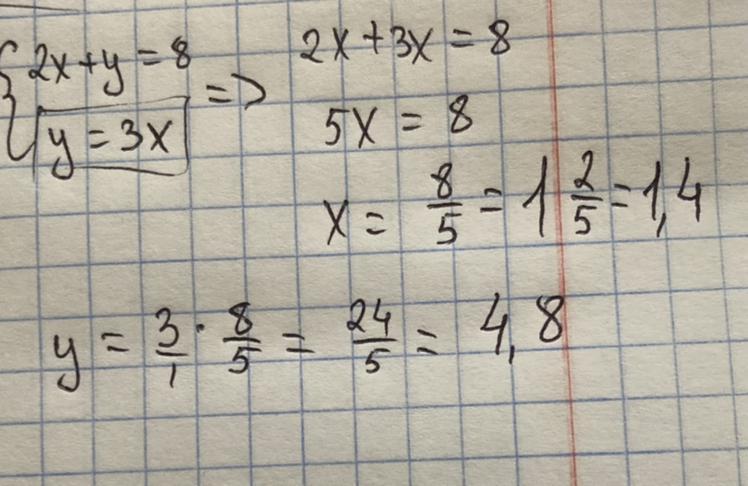 {2x+y=8
y=3x => 2x+3x=8
5x=8
x= 8/5 = 1 2/5 = 1,4
y= 3/1 · 8/5 = 24/5 = 4,8